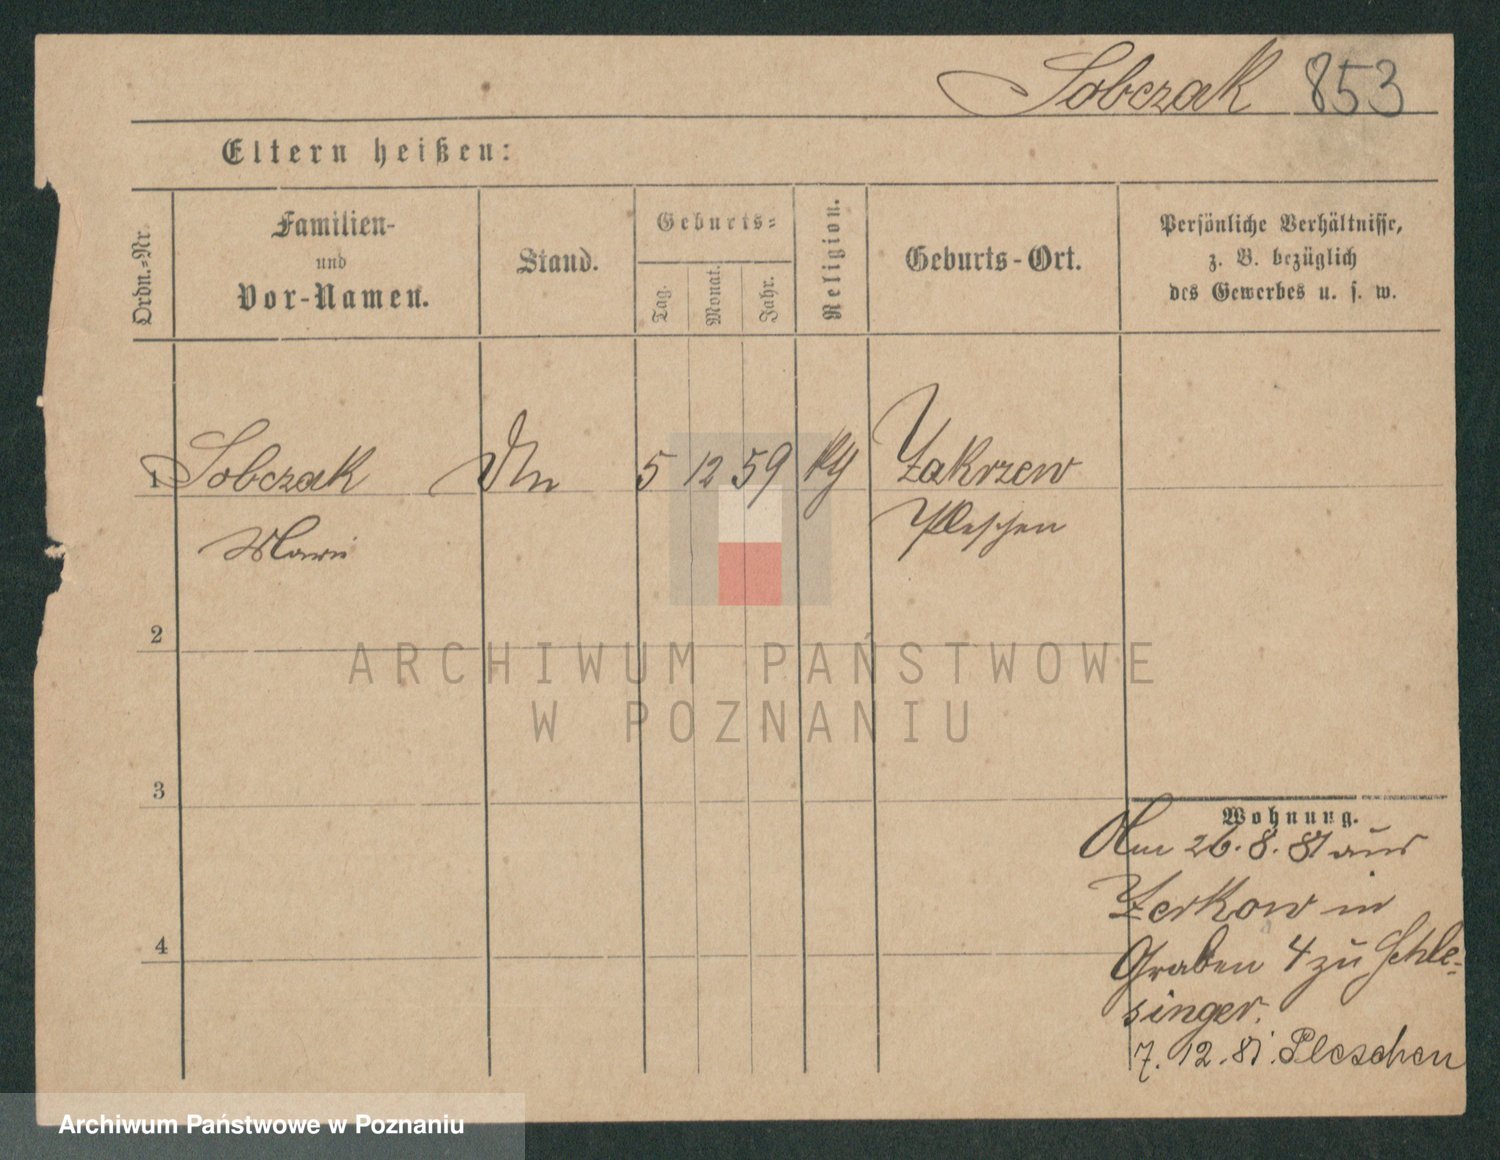 Sobczak 853
Eltern heißen:
Ordn.=Nr.
Familien-
und
Vor-Namen.
Stand.
Geburts=
Tag.
Monat.
Jahr.
Religion.
Geburts-Ort.
Persönliche Verhältnisse,
z. B. bezüglich
des Gewerbes u. s. w.
1 Sobczak 5 12 59 Zakrzew
Marie Pleschen
2
ARCHIWUM PAŃSTWOWE
W POZNANIU
3
Wohnung.
Am 26.8.81 aus
Zerkow in
Graben 4 zu Schle-
singer.
4
7.12.81. Pleschen
Archiwum Państwowe w Poznaniu